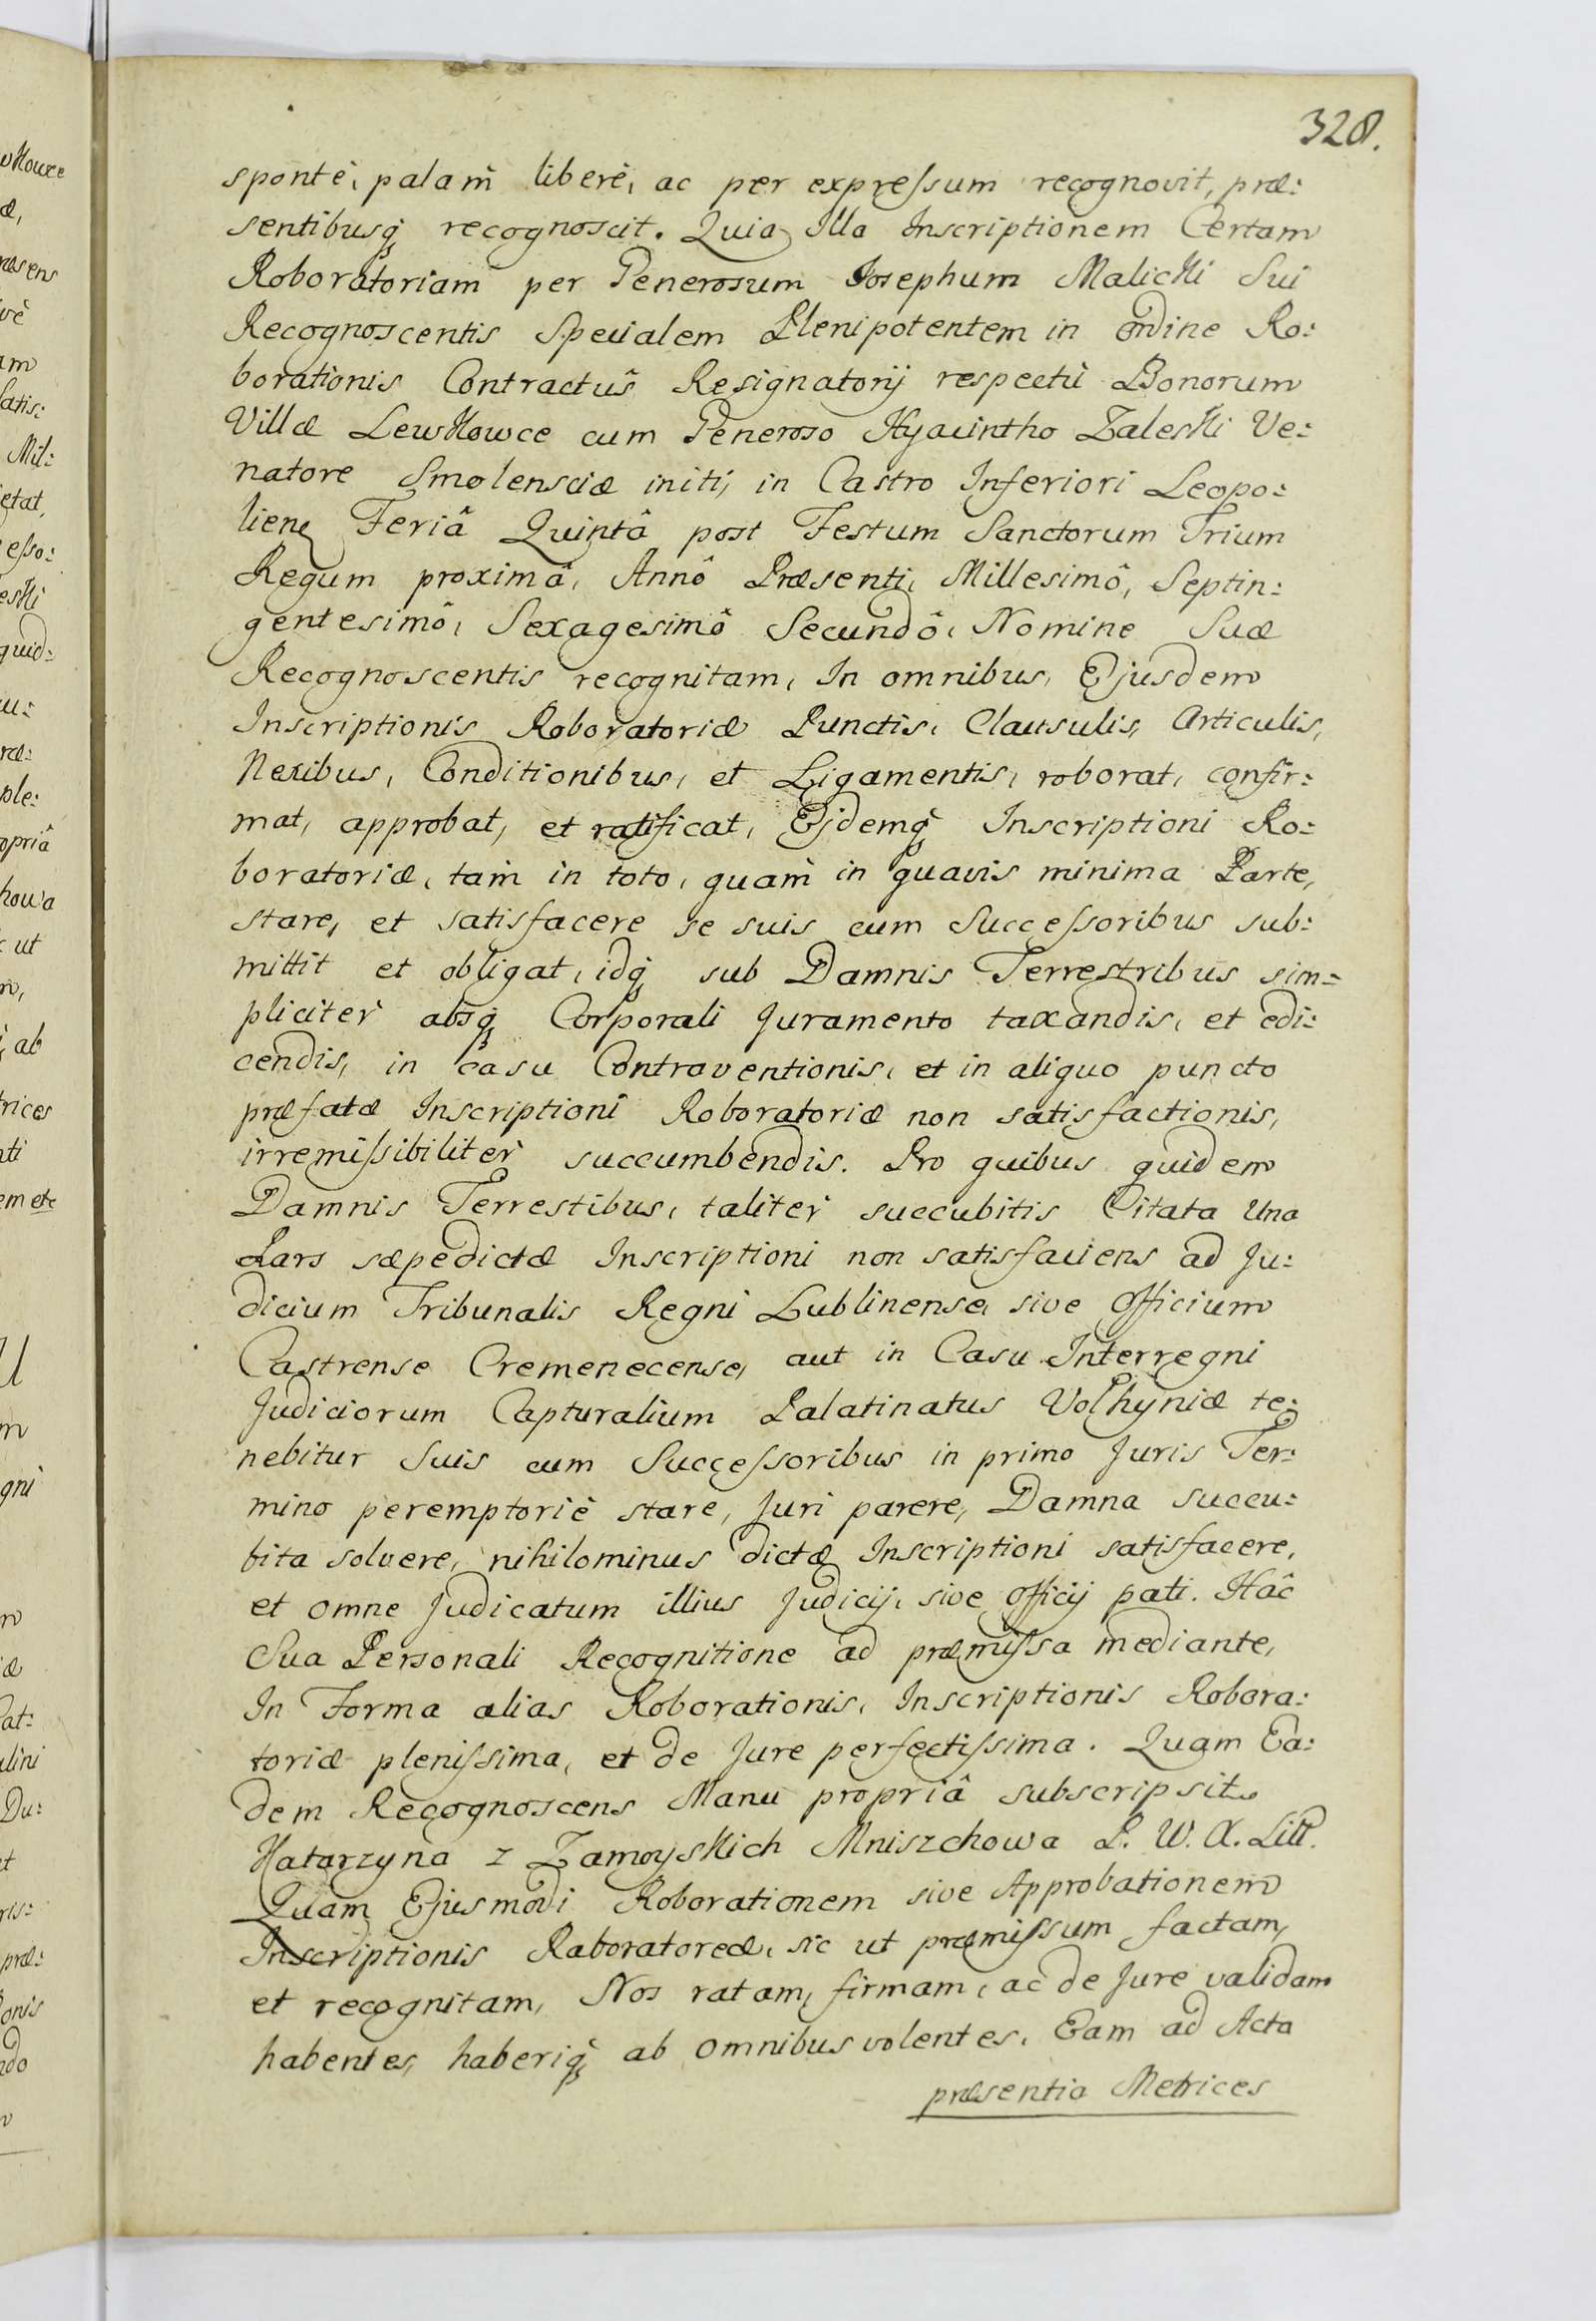 328.
spontè, palam̀ liberè, ac per expreſsum recognovit, præ:
sentibusq́ recognoscit. Quia Illa Inscriptionem Certam
Roboratoriam per Generosum Josephum Malicki Sui
Recognoscentis Specialem Plenipotentem in ordine Ro:
borationis Contractûs Resignatorij respectù Bonorum
Villæ Lewkowce cum Generoso Hyacintho Zaleski Ve:
natore Smolensciæ initi, in Castro Inferiori Leopo:
lien Feriâ Quintâ post Festum Sanctorum Trium
Regum proximâ, Annô Præsenti, Millesimô, Septin:
gentesimô, Sexagesimô Secundô, Nomine Suæ
Recognoscentis recognitam, In omnibus, Ejusdem
Inscriptionis Roboratoriæ Punctis, Clausulis, Articulis,
Nexibus, Conditionibus, et Ligamentis, roborat, confir:
mat, approbat, et ratificat, Ejdemq́ Inscriptioni Ro:
boratoriæ, tam̀ in toto, quam̀ in quavis minima Parte,
stare, et satisfacere se suis cum Succeſsoribus sub:
mittit et obligat, idq́ sub Damnis Terrestribus sim:
pliciter̀ absq́ Corporali Juramento taxandis, et edi:
cendis, in casu Contraventionis, et in aliquo puncto
præfatæ Inscriptioni Roboratoriæ non satisfactionis,
irremiſsibiliter̀ succumbendis. Pro quibus quidem
Damnis Terrestibus, taliter̀ succubitis Citata Una
Pars sæpedictæ Inscriptioni non satisfaciens ad Ju:
dicium Tribunalis Regni Lublinense, sive Officium
Castrense Cremenecense, aut in Casu Interregni
Judiciorum Capturalium Palatinatus Volhyniæ te:
nebitur Suis cum Succeſsoribus in primo Juris Ter:
mino peremptoriè stare, Juri parere, Damna succu:
bita solvere, nihilominus dictæ Inscriptioni satisfacere,
et omne Judicatum illius Judicij, sive Officij pati. Hâc
Sua Personali Recognitione ad præmiſsa mediante,
In Forma alias Roborationis, Inscriptionis Robora:
toriæ pleniſsima, et de Jure perfectiſsima. Quam Ea:
dem Recognoscens Manu propriâ subscripsit
Katarzyna z Zamoyskich Mniszchowa P. W. X. Litt.
Quam Ejusmodi Roborationem sive Approbationem
Inscriptionis Raboratoreæ, sic ut præmiſsum factam,
et recognitam, Nos ratam, firmam, ac de Jure validam
habentes, haberiq́ ab omnibus volentes, Eam ad Acta
præsentia Metrices